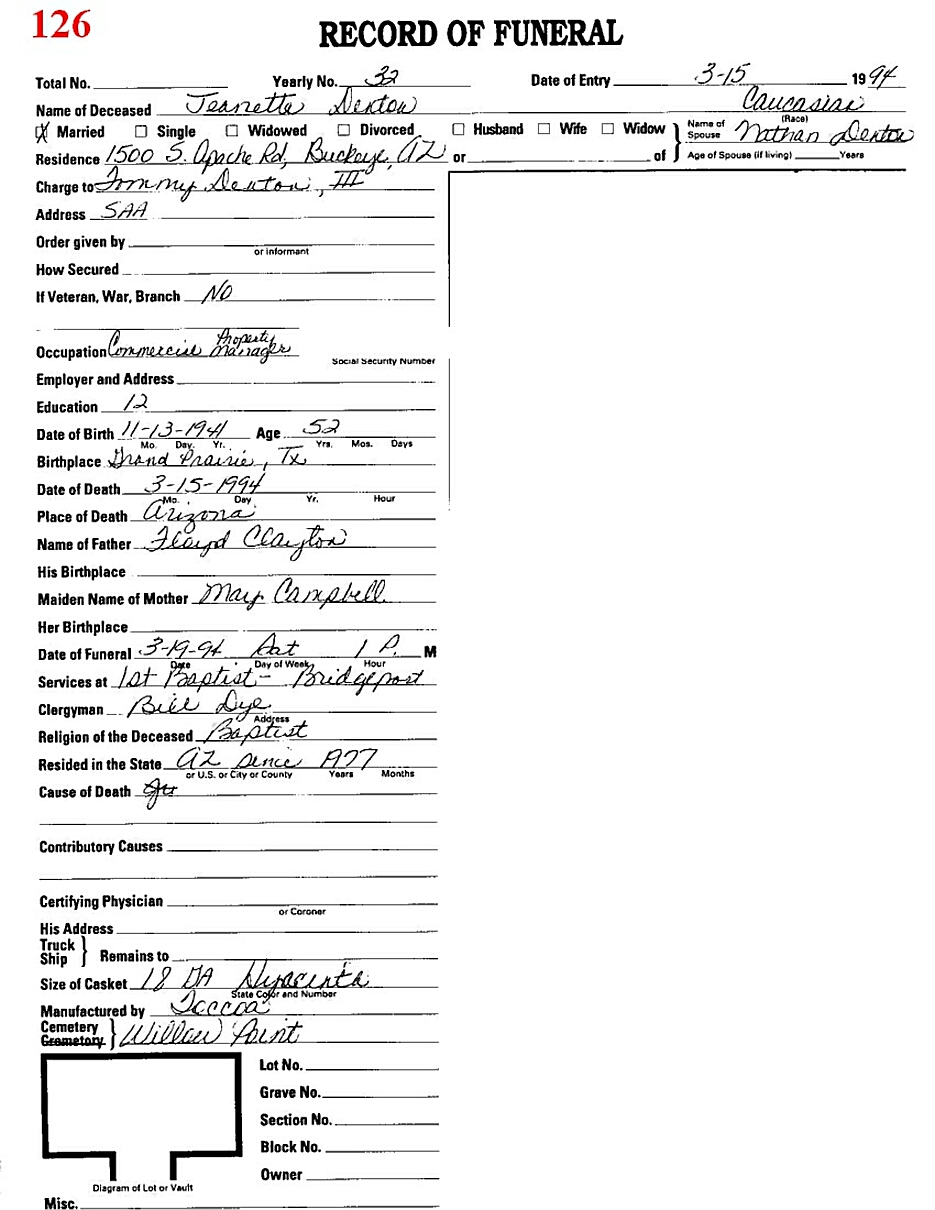 126
RECORD OF FUNERAL
Total No. Yearly No. 32 Date of Entry 3-15 1994
Name of Deceased Jeanette Denton Caucasian
(Race)
Married Single Widowed Divorced Husband Wife Widow Name of Spouse Nathan Denton
Residence 1500 S. Apache Rd, Buckeye, AZ or of Age of Spouse (if living) Years
Charge to Tommy Denton, III
Address SAA
Order given by
or informant
How Secured
If Veteran, War, Branch NO
Occupation Commercial Property Manager
Social Security Number
Employer and Address
Education 12
Date of Birth 11-13-1941 Age 52
Mo. Day. Yr. Yrs. Mos. Days
Birthplace Grand Prairie, Tx
Date of Death 3-15-1994
Mo. Day Yr. Hour
Place of Death Arizona
Name of Father Floyd Clayton
His Birthplace
Maiden Name of Mother Mary Campbell
Her Birthplace
Date of Funeral 3-19-94 Sat 1 P. M
Date Day of Week Hour
Services at 1st Baptist - Bridgeport
Clergyman Bill Dye
Address
Religion of the Deceased Baptist
Resided in the State AZ since 1977
or U.S. or City or County Years Months
Cause of Death
Contributory Causes
Certifying Physician
or Coroner
His Address
Truck
Ship } Remains to
Size of Casket 18 GA Hyacinth
State Color and Number
Manufactured by Toccoa
Cemetery
Crematory } Willow Point
Lot No.
Grave No.
Section No.
Block No.
Owner
Diagram of Lot or Vault
Misc.